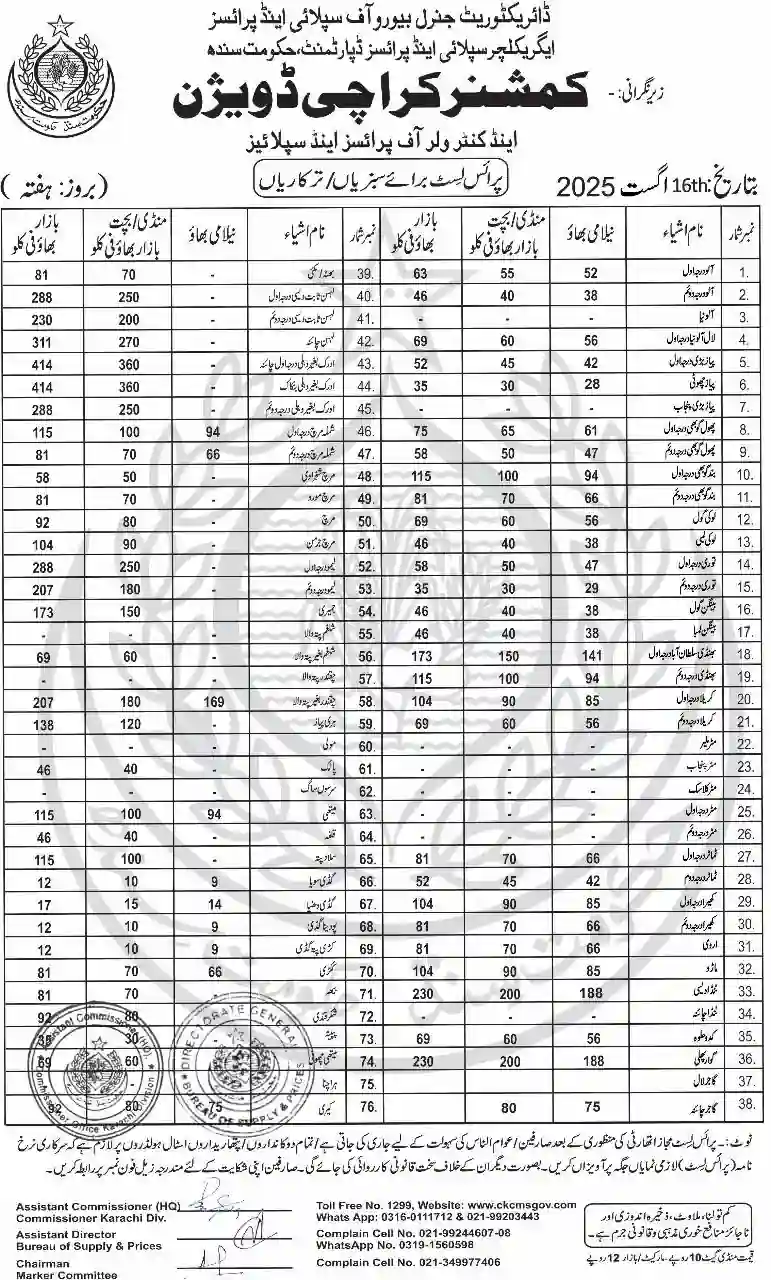 ڈائریکٹوریٹ جنرل بیورو آف سپلائی اینڈ پرائسز
ایگریکلچر سپلائی اینڈ پرائسز ڈپارٹمنٹ، حکومت سندھ
زیر نگرانی: - کمشنر کراچی ڈویژن
اینڈ کنٹرولر آف پرائسز اینڈ سپلائیز
بتاریخ: 16th اگست 2025 پرائس لسٹ برائے سبزیاں/ترکاریاں (بروز: ہفتہ)
نمبر شمار نام اشیاء نیلامی بھاؤ منڈی/بچت بازار بھاؤ فی کلو بازار بھاؤ فی کلو
1. آلو درجہ اول 52 55 63
2. آلو درجہ دوئم 38 40 46
3. آلو نیا - - -
4. لال آلو نیا درجہ اول 56 60 69
5. پیاز بڑی درجہ اول 42 45 52
6. پیاز چھوٹی 28 30 35
7. پیاز بڑی پنجاب - - -
8. پھول گوبھی درجہ اول 61 65 75
9. پھول گوبھی درجہ دوئم 47 50 58
10. بند گوبھی درجہ اول 94 100 115
11. بند گوبھی درجہ دوئم 66 70 81
12. لوکی گول 56 60 69
13. لوکی لمبی 38 40 46
14. توری درجہ اول 47 50 58
15. توری درجہ دوئم 29 30 35
16. بینگن گول 38 40 46
17. بینگن لمبا 38 40 46
18. بھنڈی سلطان آباد درجہ اول 141 150 173
19. بھنڈی درجہ دوئم 94 100 115
20. کریلا درجہ اول 85 90 104
21. کریلا درجہ دوئم 56 60 69
22. مٹر ملیر - - -
23. مٹر پنجاب - - -
24. مٹر کلاسک - - -
25. مٹر درجہ اول - - -
26. مٹر درجہ دوئم - - -
27. ٹماٹر درجہ اول 66 70 81
28. ٹماٹر درجہ دوم 42 45 52
29. کھیرا درجہ اول 85 90 104
30. کھیرا درجہ دوئم 66 70 81
31. اروی 66 70 81
32. ماڑو 85 90 104
33. ٹنڈا دیسی 188 200 230
34. ٹنڈا چائنہ - - -
35. کدو حلوہ 56 60 69
36. گوار پھلی 188 200 230
37. گاجر لال
38. گاجر چائنہ 75 80
نمبر شمار نام اشیاء نیلامی بھاؤ منڈی/بچت بازار بھاؤ فی کلو بازار بھاؤ فی کلو
39. بھٹہ/مکئی - 70 81
40. لہسن ثابت دیسی درجہ اول - 250 288
41. لہسن ثابت دیسی درجہ دوئم - 200 230
42. لہسن چائنہ - 270 311
43. ادرک بغیر دھلی درجہ اول چائنہ - 360 414
44. ادرک بغیر دھلی بنکاک - 360 414
45. ادرک بغیر دھلی درجہ دوئم - 250 288
46. شملہ مرچ درجہ اول 94 100 115
47. شملہ مرچ درجہ دوئم 66 70 81
48. مرچ شہزادی - 50 58
49. مرچ مورو - 70 81
50. مرچ - 80 92
51. مرچ جرمن - 90 104
52. لیمو درجہ اول - 250 288
53. لیمو درجہ دوئم - 180 207
54. جمیری - 150 173
55. شلغم پتہ والا - - -
56. شلغم بغیر پتہ والا - 60 69
57. چقندر پتہ والا - - -
58. چقندر بغیر پتہ والا 169 180 207
59. ہری پیاز - 120 138
60. مولی - - -
61. پالک - 40 46
62. سرسوں ساگ - - -
63. میتھی 94 100 115
64. قلفہ - 40 46
65. سلاد پتہ - 100 115
66. گڈی سویا 9 10 12
67. گڈی دھنیا 14 15 17
68. پودینا گڈی 9 10 12
69. کڑی پتہ گڈی 9 10 12
70. ککڑی 66 70 81
71. - 70 81
72. شکرقندی - 80 92
73. 30 35
74. میتھی چھوٹی 60 69
75.
76. کیری 75 80 92
Assistant Commissioner (HQ). Commissioner Office Karachi Division
DIRECTORATE GENERAL BUREAU OF SUPPLY & PRICES
نوٹ:۔ پرائس لسٹ مجاز اتھارٹی کی منظوری کے بعد صارفین/عوام الناس کی سہولت کے لیے جاری کی جاتی ہے/تمام دوکانداروں/پتھاریداروں اسٹال ہولڈروں پر لازم ہے کہ سرکاری نرخ
نامہ (پرائس لسٹ) لازمی نمایاں جگہ پر آویزاں کریں۔ بصورت دیگر ان کے خلاف سخت قانونی کارروائی کی جائے گی۔ صارفین اپنی شکایت کے لئے مندرجہ ذیل فون نمبر پر رابطہ کریں۔
Assistant Commissioner (HQ)
Commissioner Karachi Div.
Assistant Director
Bureau of Supply & Prices
Chairman
Marker Committee
Toll Free No. 1299, Website: www.ckcmsgov.com
Whats App: 0316-0111712 & 021-99203443
Complain Cell No. 021-99244607-08
WhatsApp No. 0319-1560598
Complain Cell No. 021-349977406
کم تولنا، ملاوٹ، ذخیرہ اندوزی اور
ناجائز منافع خوری مذہبی و قانونی جرم ہے۔
قیمت منڈی گیٹ 10 روپے۔ مارکیٹ/بازار 12 روپے